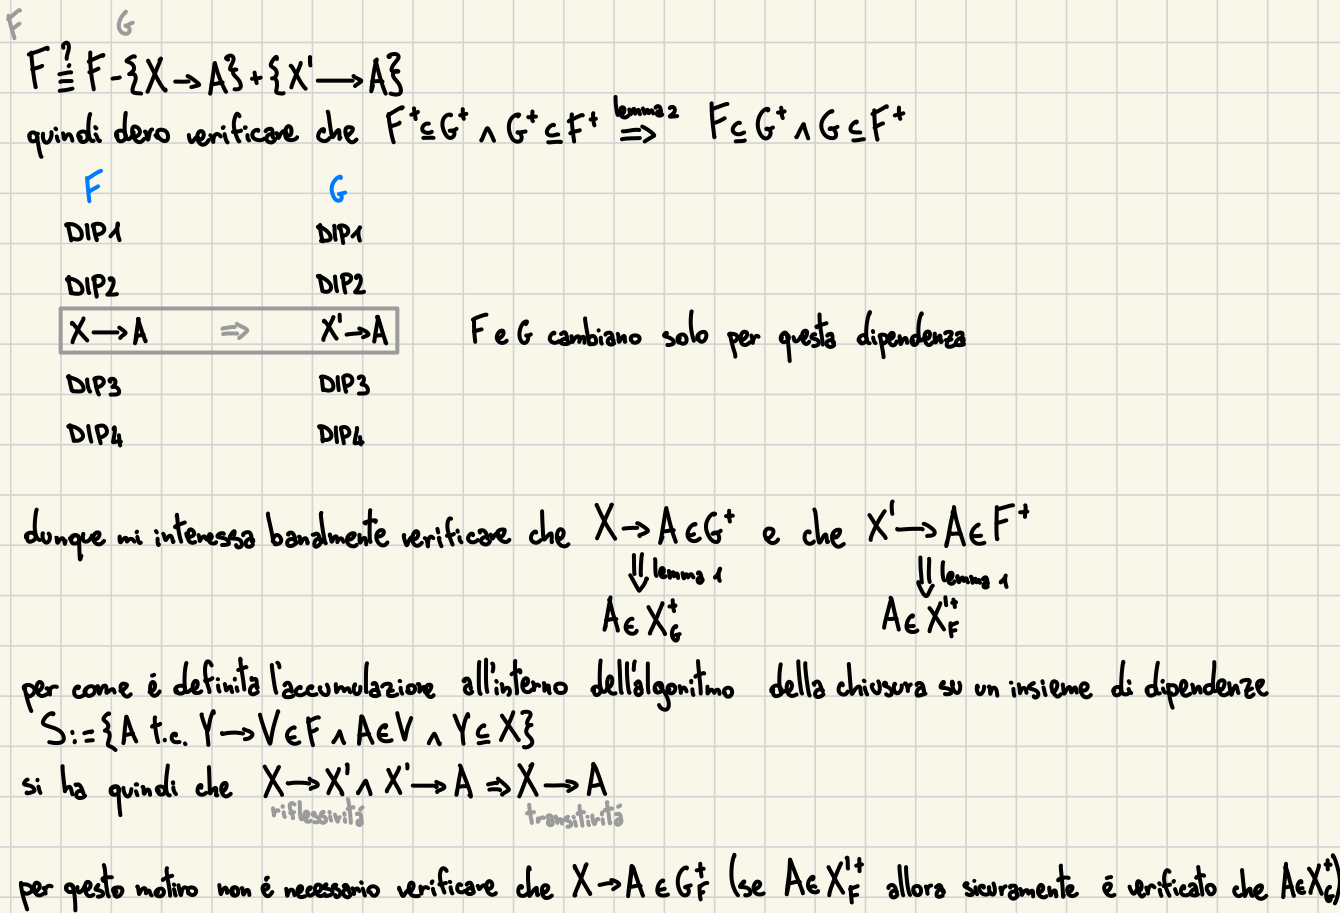 F G
F ≟ F-{X→A}+{X'→A}
quindi devo verificare che F⁺⊆G⁺ ∧ G⁺⊆F⁺ lemma 2 ⇒ F⊆G⁺ ∧ G⊆F⁺
F G
DIP1 DIP1
DIP2 DIP2
X→A ⇒ X'→A F e G cambiano solo per questa dipendenza
DIP3 DIP3
DIP4 DIP4
dunque mi interessa banalmente verificare che X→A∈G⁺ e che X'→A∈F⁺
⇓ lemma 1 ⇓ lemma 1
A∈X⁺_G A∈X'⁺_F
per come é definita l'accumulazione all'interno dell'algoritmo della chiusura su un insieme di dipendenze
S:={A t.c. Y→V∈F ∧ A∈V ∧ Y⊆X}
si ha quindi che X→X' ∧ X'→A ⇒ X→A
riflessivitá transitivitá
per questo motivo non é necessario verificare che X→A∈G⁺_F (se A∈X'⁺_F allora sicuramente é verificato che A∈X⁺_G)